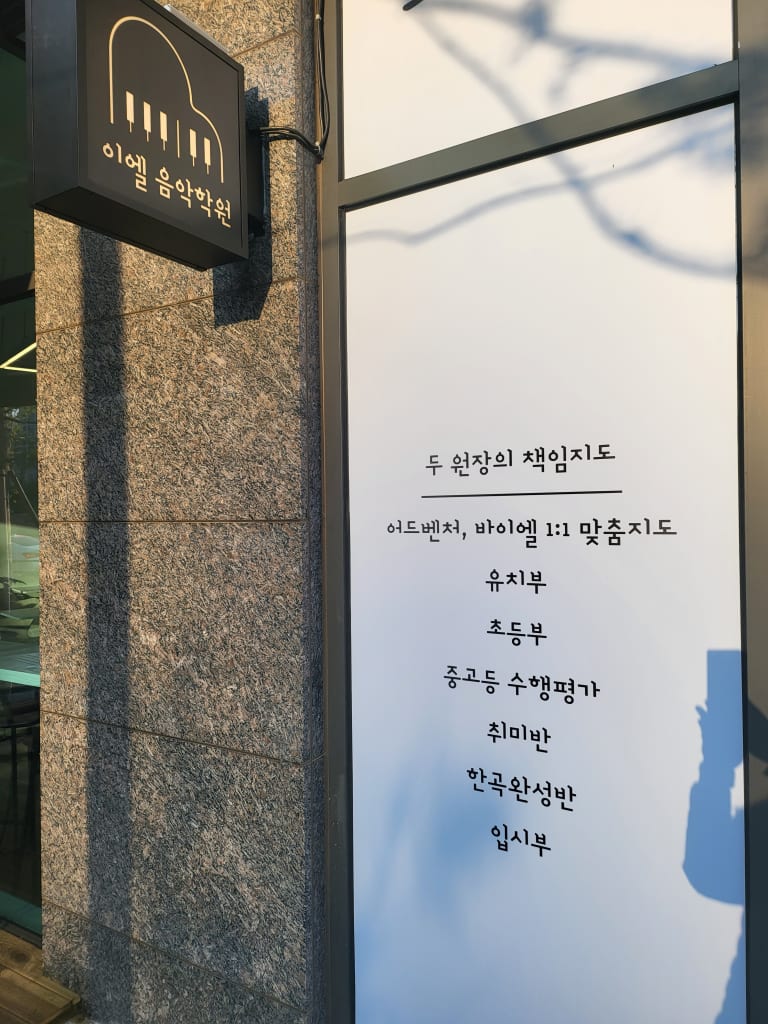 이엘 음악학원
두 원장의 책임지도
어드벤처, 바이엘 1:1 맞춤지도
유치부
초등부
중고등 수행평가
취미반
한곡완성반
입시부